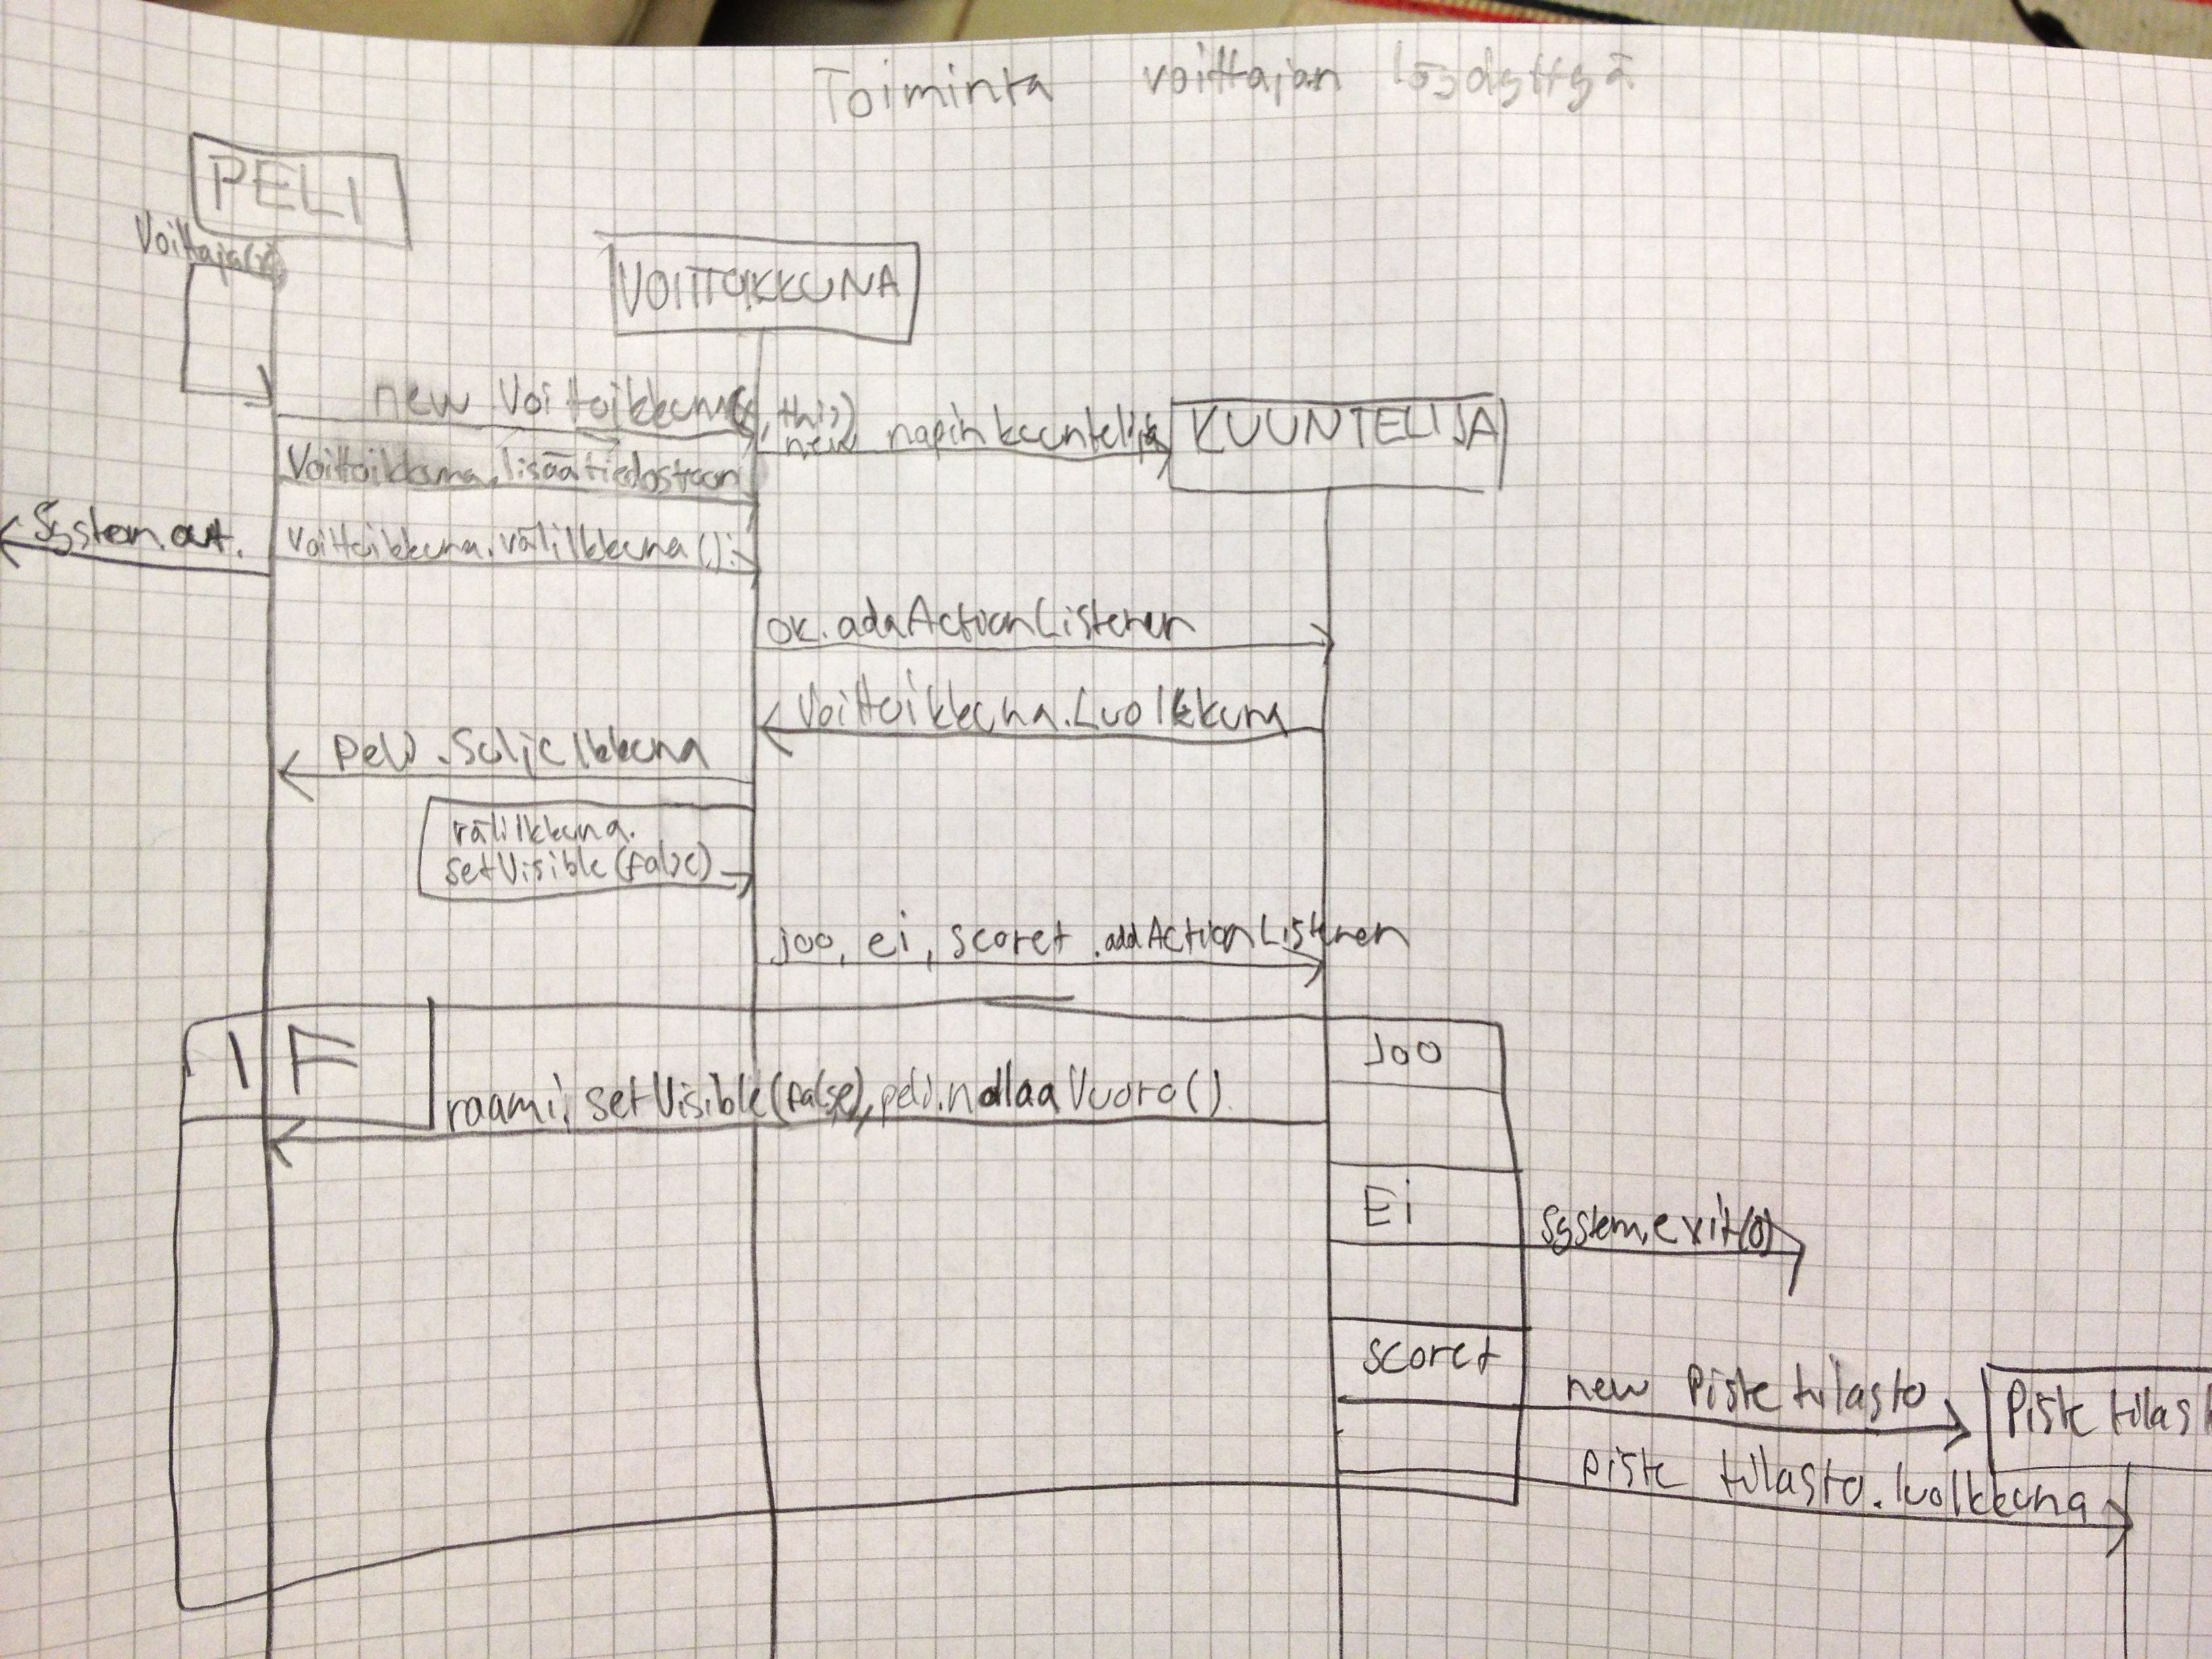 Toiminta voittajan löydyttyä
PELI
Voittaja(x)
VOITTOIKKUNA
new Voittoikkuna(x, this)
new napinkuuntelija
KUUNTELIJA
Voittoikkuna.lisäätiedostoon
System.out.
Voittoikkuna.väliIkkuna();
ok.addActionListener
Voittoikkuna.LuoIkkuna
Peli.SuljeIkkuna
väliIkkuna.
setVisible(false)
joo, ei, scoret .addActionListener
IF
Joo
raami.setVisible(false), peli.nollaaVuoro()
Ei
System.exit(0)
scoret
new Pistetilasto
Piste tilast
piste tilasto.luoIkkuna